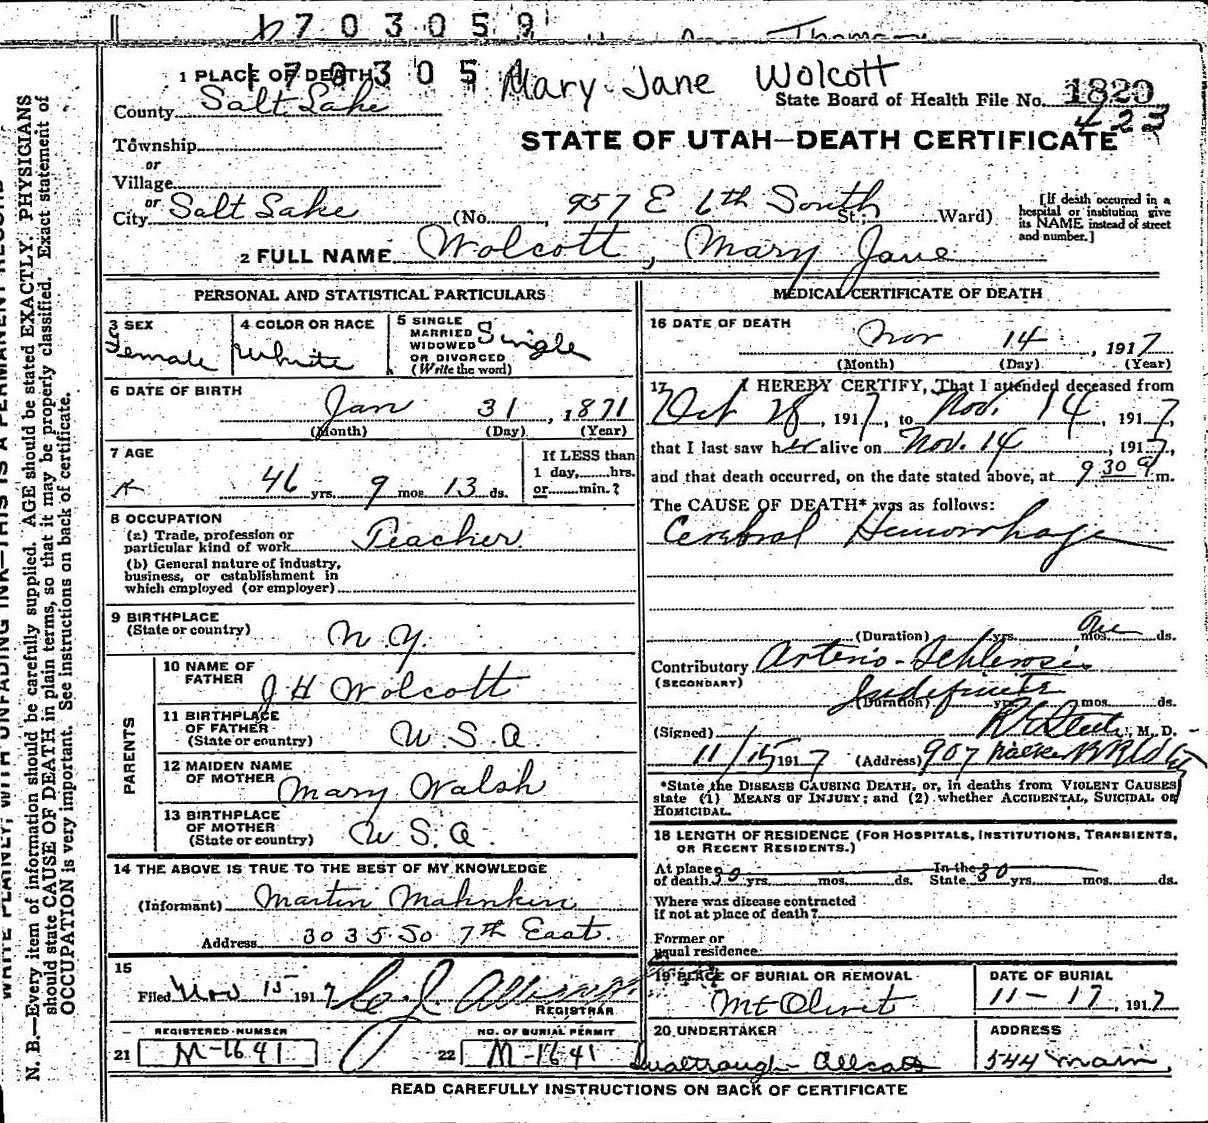 1703059
1 PLACE OF DEATH
Mary Jane Wolcott
County Salt Lake
State Board of Health File No. 1820
423
STATE OF UTAH—DEATH CERTIFICATE
Township
or
Village
or
City Salt Lake (No. 957 E 6th South St.; Ward)
[If death occurred in a hospital or institution give its NAME instead of street and number.]
2 FULL NAME Wolcott, Mary Jane
PERSONAL AND STATISTICAL PARTICULARS
3 SEX Female
4 COLOR OR RACE White
5 SINGLE MARRIED WIDOWED OR DIVORCED (Write the word) Single
6 DATE OF BIRTH
Jan 31, 1871
(Month) (Day) (Year)
7 AGE
46 yrs. 9 mos. 13 ds.
If LESS than 1 day, hrs. or min.?
8 OCCUPATION
(a) Trade, profession or particular kind of work Teacher
(b) General nature of industry, business, or establishment in which employed (or employer)
9 BIRTHPLACE (State or country) N.Y.
PARENTS
10 NAME OF FATHER J H Wolcott
11 BIRTHPLACE OF FATHER (State or country) U.S.A.
12 MAIDEN NAME OF MOTHER Mary Walsh
13 BIRTHPLACE OF MOTHER (State or country) U.S.A.
14 THE ABOVE IS TRUE TO THE BEST OF MY KNOWLEDGE
(Informant) Martin Mahnkin
Address 3035 So 7th East.
15
Filed Nov 15 1917
REGISTRAR
REGISTERED NUMBER
21 M-1641
NO. OF BURIAL PERMIT
22 M-1641
MEDICAL CERTIFICATE OF DEATH
16 DATE OF DEATH
Nov 14, 1917
(Month) (Day) (Year)
17 I HEREBY CERTIFY, That I attended deceased from
Oct 28, 1917, to Nov. 14, 1917,
that I last saw her alive on Nov. 14, 1917,
and that death occurred, on the date stated above, at 9 30 a m.
The CAUSE OF DEATH* was as follows:
Cerebral Hemorrhage
(Duration) yrs. One mos. ds.
Contributory Arterio-Schlerosis
(SECONDARY)
Indefinite
(Duration) yrs. mos. ds.
(Signed) M. D.
11/15 1917 (Address) 907 Walker
*State the DISEASE CAUSING DEATH, or, in deaths from VIOLENT CAUSES
state (1) MEANS OF INJURY; and (2) whether ACCIDENTAL, SUICIDAL OR
HOMICIDAL.
18 LENGTH OF RESIDENCE (FOR HOSPITALS, INSTITUTIONS, TRANSIENTS, OR RECENT RESIDENTS.)
At place of death 30 yrs. mos. ds. In the State 30 yrs. mos. ds.
Where was disease contracted if not at place of death?
Former or usual residence
19 PLACE OF BURIAL OR REMOVAL
Mt Olivet
DATE OF BURIAL
11-17, 1917
20 UNDERTAKER
ADDRESS
544 Main
READ CAREFULLY INSTRUCTIONS ON BACK OF CERTIFICATE
N. B.—Every item of information should be carefully supplied. AGE should be stated EXACTLY. PHYSICIANS
should state CAUSE OF DEATH in plain terms, so that it may be properly classified. Exact statement of
OCCUPATION is very important. See instructions on back of certificate.